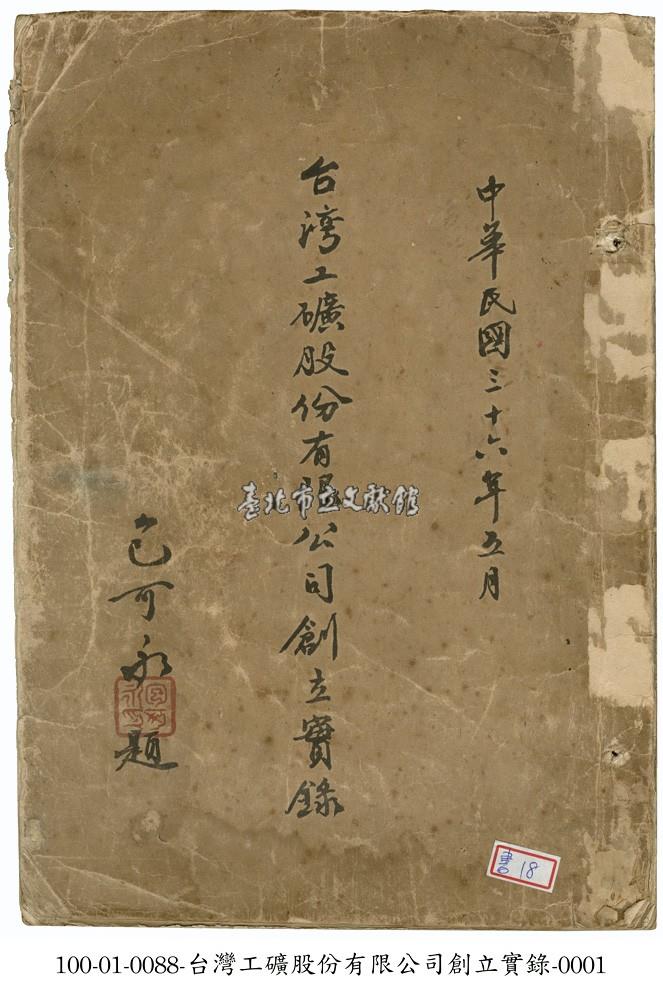 中華民國三十六年五月
台灣工礦股份有限公司創立實錄
包可永題
臺北市立文獻館
書 18
100-01-0088-台灣工礦股份有限公司創立實錄-0001